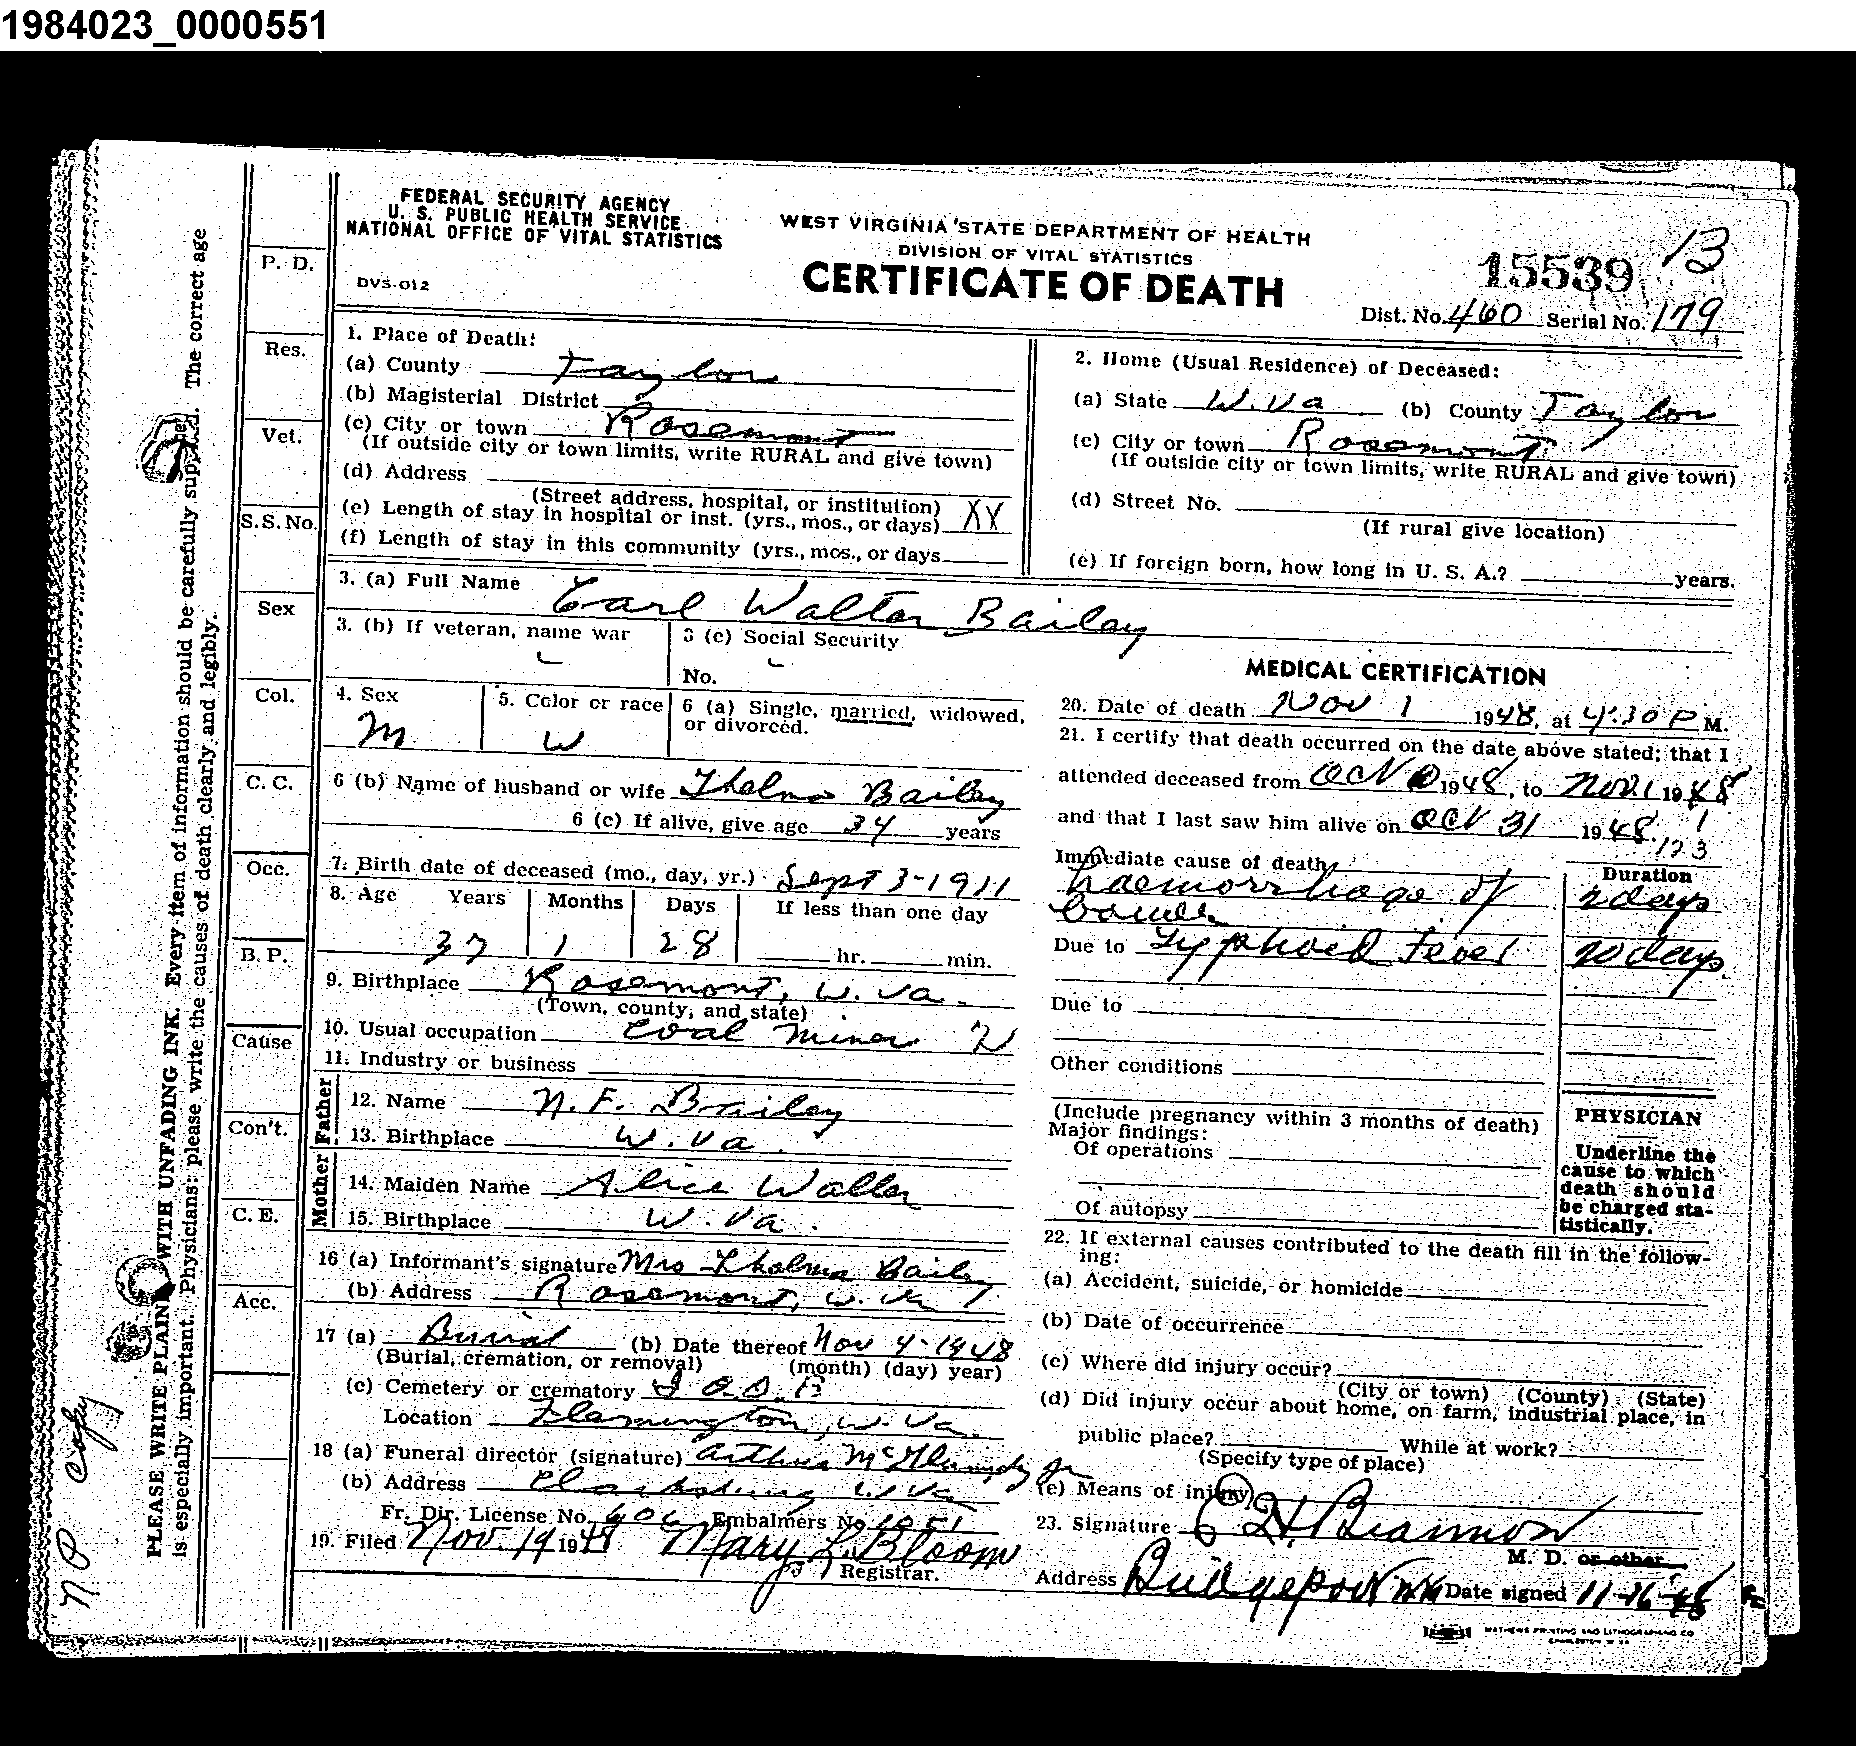 1984023_0000551
FEDERAL SECURITY AGENCY
U. S. PUBLIC HEALTH SERVICE
NATIONAL OFFICE OF VITAL STATISTICS
DVS-012
WEST VIRGINIA STATE DEPARTMENT OF HEALTH
DIVISION OF VITAL STATISTICS
CERTIFICATE OF DEATH
15539 13
Dist. No. 460 Serial No. 179
PLEASE WRITE PLAINLY WITH UNFADING INK. Every item of information should be carefully supplied. The correct age
is especially important. Physicians: please write the causes of death clearly and legibly.
P. D.
Res.
Vet.
S.S. No.
Sex
Col.
C. C.
Occ.
B. P.
Cause
Con't.
C. E.
Acc.
copy
1. Place of Death:
(a) County Taylor
(b) Magisterial District
(c) City or town Rosemont
(If outside city or town limits, write RURAL and give town)
(d) Address
(Street address, hospital, or institution)
(e) Length of stay in hospital or inst. (yrs., mos., or days) XX
(f) Length of stay in this community (yrs., mos., or days
2. Home (Usual Residence) of Deceased:
(a) State W. Va (b) County Taylor
(c) City or town Rosemont
(If outside city or town limits, write RURAL and give town)
(d) Street No.
(If rural give location)
(e) If foreign born, how long in U. S. A.? years.
3. (a) Full Name Carl Walter Bailey
3. (b) If veteran, name war
3 (c) Social Security
No.
4. Sex
M
5. Color or race
W
6 (a) Single, married, widowed,
or divorced.
6 (b) Name of husband or wife Thelma Bailey
6 (c) If alive, give age 34 years
7. Birth date of deceased (mo., day, yr.) Sept 3-1911
8. Age Years Months Days If less than one day
37 1 28 hr. min.
9. Birthplace Rosemont, W. Va.
(Town, county, and state)
10. Usual occupation Coal Miner
11. Industry or business
Father
12. Name N. F. Bailey
13. Birthplace W. Va.
Mother
14. Maiden Name Alice Waller
15. Birthplace W. Va.
16 (a) Informant's signature Mrs Thelma Bailey
(b) Address Rosemont, W. Va
17 (a) Burial (b) Date thereof Nov 4-1948
(Burial, cremation, or removal) (month) (day) year)
(c) Cemetery or crematory I O O F
Location Flemington, W. Va.
18 (a) Funeral director (signature) Arthur Jr
(b) Address Clarksburg W Va
Fr. Dir. License No. 606 Embalmers No. 1051
19. Filed Nov. 19 1948 Mary L. Bloom
Registrar.
MEDICAL CERTIFICATION
20. Date of death Nov 1 1948, at 4:30 P M.
21. I certify that death occurred on the date above stated; that I
attended deceased from Oct 1948, to Nov. 1 1948
and that I last saw him alive on Oct 31 1948.
1
123
Immediate cause of death
haemorrhage of
bowels
Duration
2 days
Due to Typhoid fever 20 days
Due to
Other conditions
(Include pregnancy within 3 months of death)
Major findings:
Of operations
Of autopsy
PHYSICIAN
Underline the
cause to which
death should
be charged sta-
tistically.
22. If external causes contributed to the death fill in the follow-
ing:
(a) Accident, suicide, or homicide
(b) Date of occurrence
(c) Where did injury occur?
(City or town) (County) (State)
(d) Did injury occur about home, on farm, industrial place, in
public place? While at work?
(Specify type of place)
(e) Means of injury
23. Signature C H Brannon
M. D. or other
Address Bridgeport WVa Date signed 11-16-48
MATHEWS PRINTING AND LITHOGRAPHING CO
CHARLESTON W VA